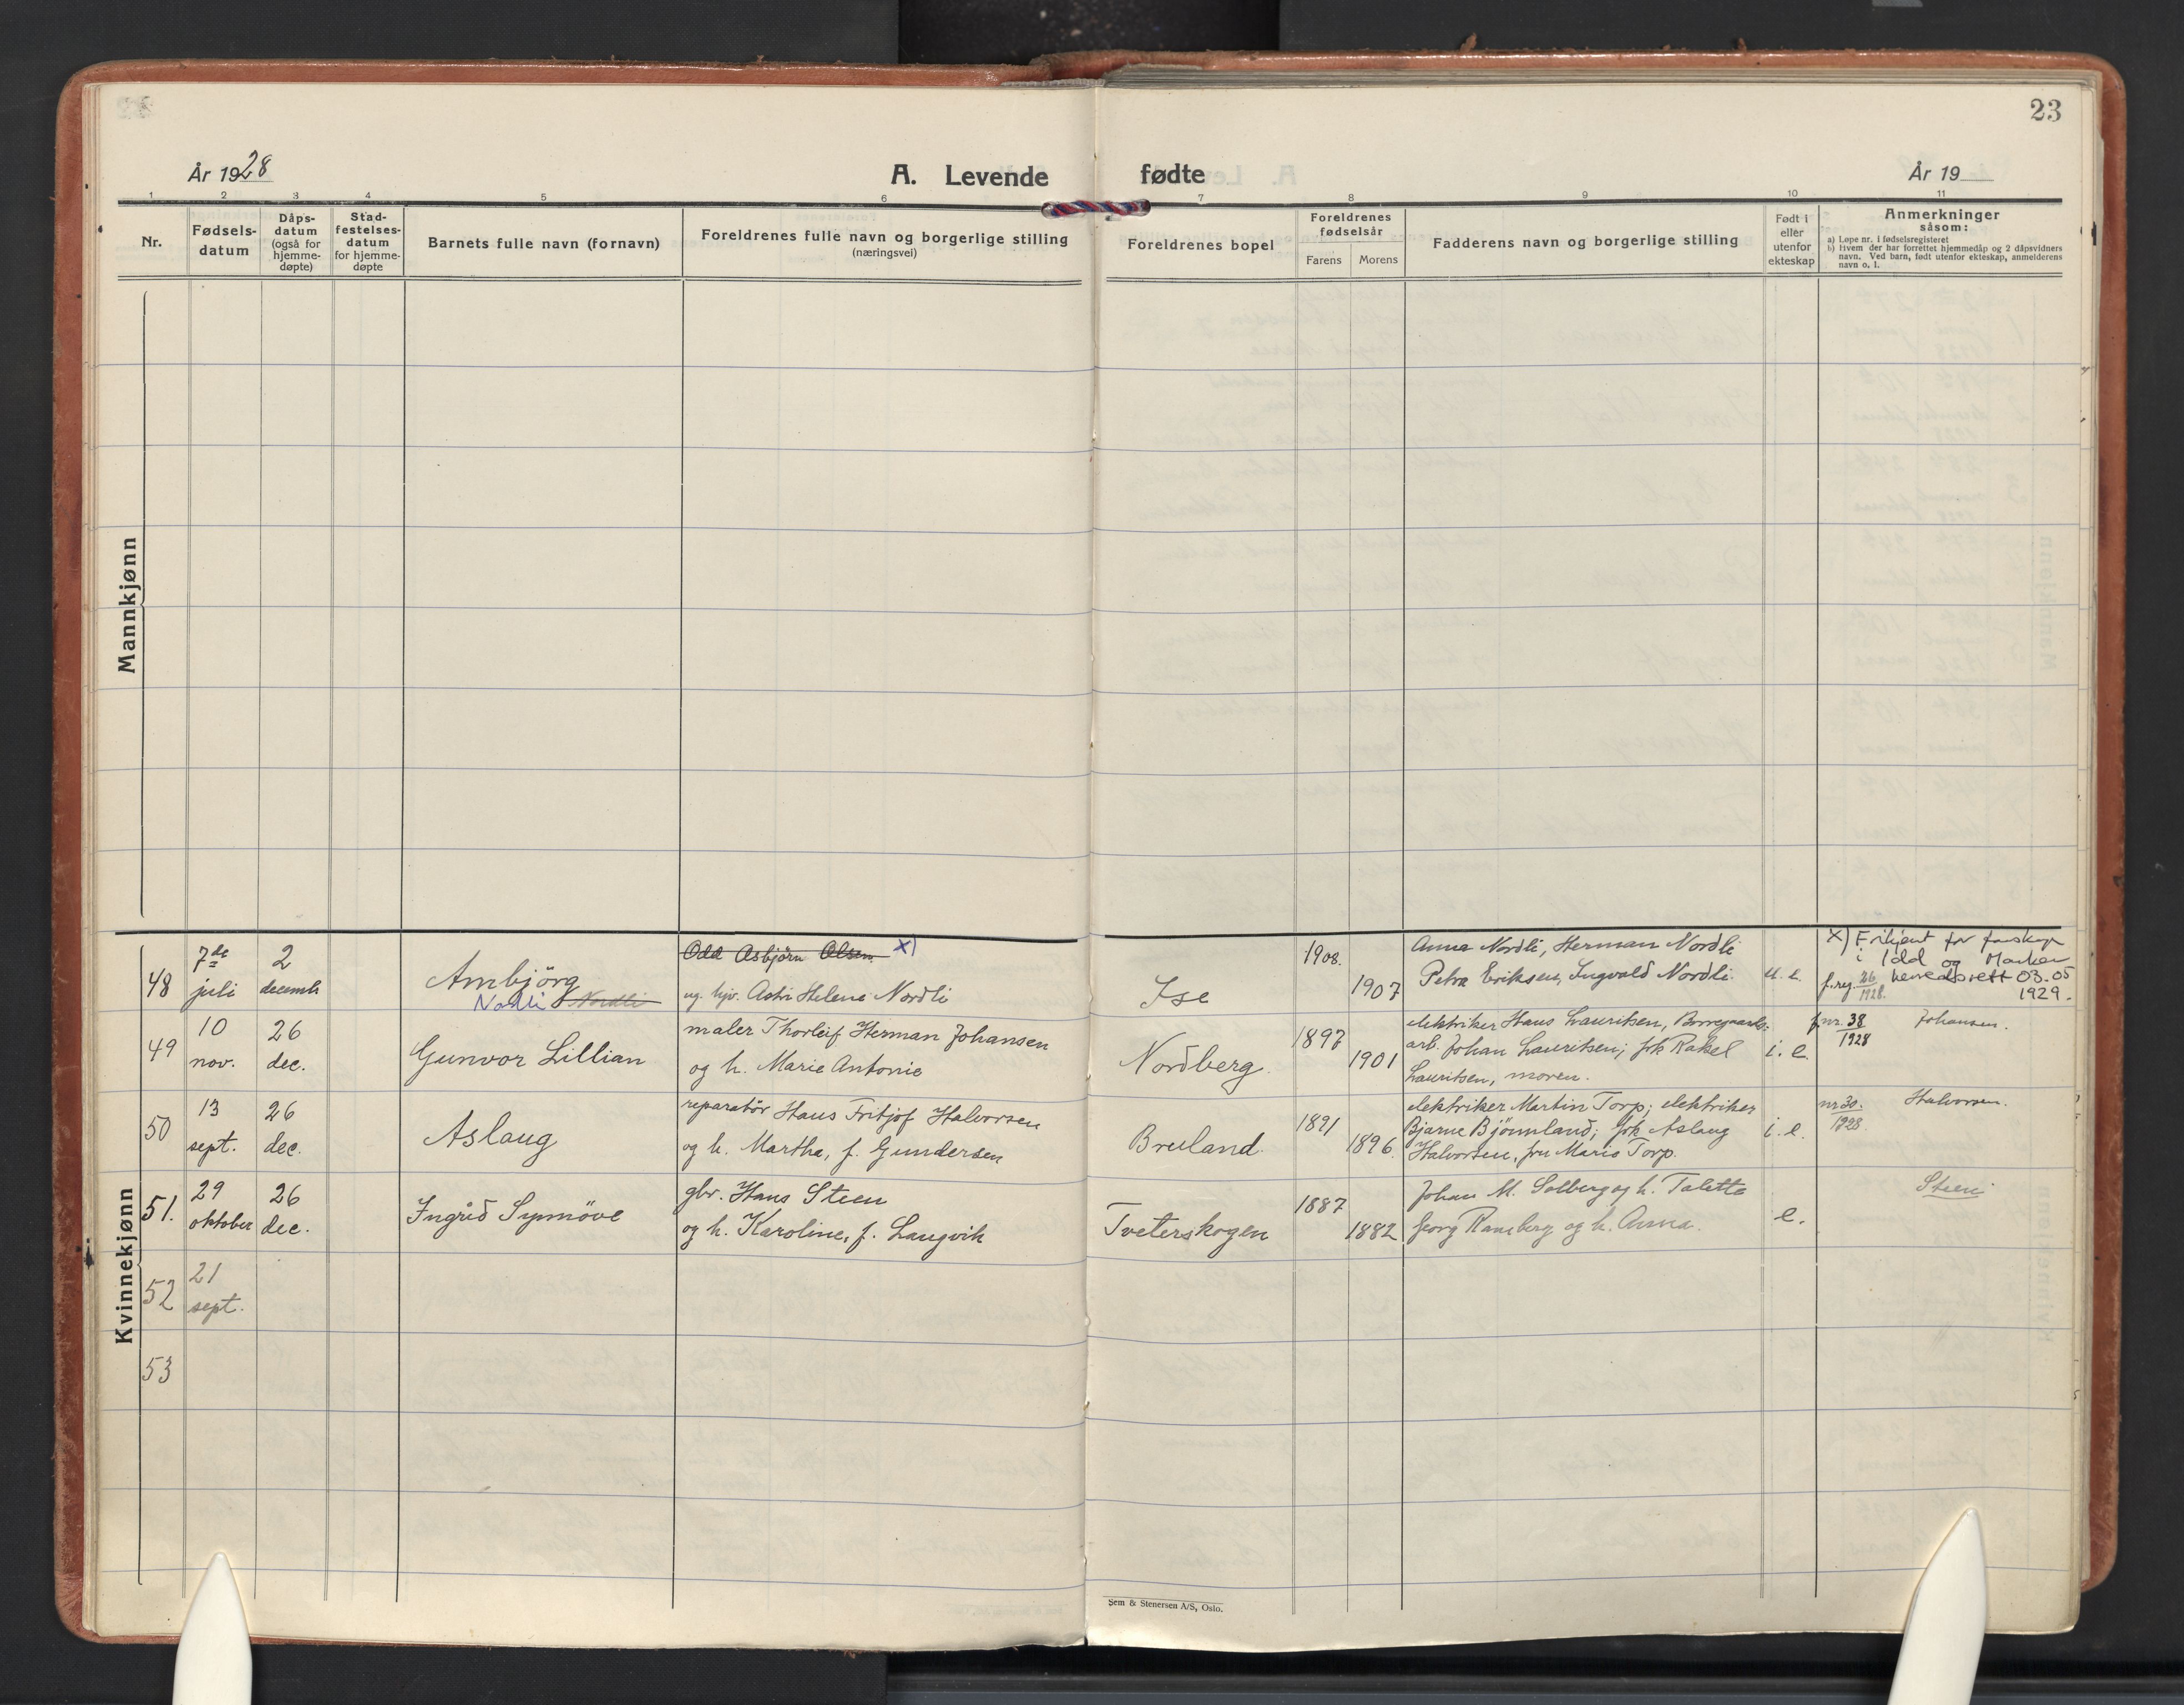 23
År 1928
A. Levende fødte
År 19
1 2 3 4 5 6 7 8 9 10 11
Nr.
Fødsels-
datum
Dåps-
datum
(også for
hjemme-
døpte)
Stad-
festelses-
datum
for hjemme-
døpte
Barnets fulle navn (fornavn)
Foreldrenes fulle navn og borgerlige stilling
(næringsvei)
Foreldrenes bopel
Foreldrenes
fødselsår
Farens Morens
Fadderens navn og borgerlige stilling
Født i
eller
utenfor
ekteskap
Anmerkninger
såsom:
a) Løpe nr. i fødselsregisteret
b) Hvem der har forrettet hjemmedåp og 2 dåpsvidners
navn. Ved barn, født utenfor ekteskap, anmelderens
navn o. l.
Mannkjønn
Kvinnekjønn
48
7de
juli
2
decemb
Ambjörg
Nordli Nordli
Odd Asbjörn Olsen x)
ug. hjv. Astri Helene Nordli
Ise
1908.
1907
Anna Nordli, Herman Nordli
Petra Eriksen, Ingvald Nordli.
u. e.
x) Frikjent for farskap
i Idd og Marker
f.reg. 26/1928. herredsrett 03.05
1929.
49
10
nov.
26
dec.
Gunvor Lillian
maler Thorleif Herman Johansen
og h. Marie Antonie
Nordberg.
1897
1901
elektriker Hans Lauritsen, Borregaards-
arb. Johan Lauritsen; frk Rakel
Lauritsen, moren.
i. e.
f.nr. 38
1928
Johansen.
50
13
sept.
26
dec.
Aslaug
reparatör Hans Fritjof Halvorsen
og h. Martha, f. Gundersen
Breland.
1891
1896.
elektriker Martin Torp; elektriker
Bjarne Björnland; frk Aslaug
Halvorsen, fru Marie Torp.
i. e.
nr 30.
1928.
Halvorsen.
51.
29
oktober
26
dec.
Ingrid Synnöve
gbr. Hans Steen
og h. Karoline, f. Langvik
Tveterskogen
1887
1882
Johan M. Solberg og h. Talette
Georg Ramberg og h. Anna.
e.
Steen
52
21
sept.
53
Sem & Stenersen A/S, Oslo.